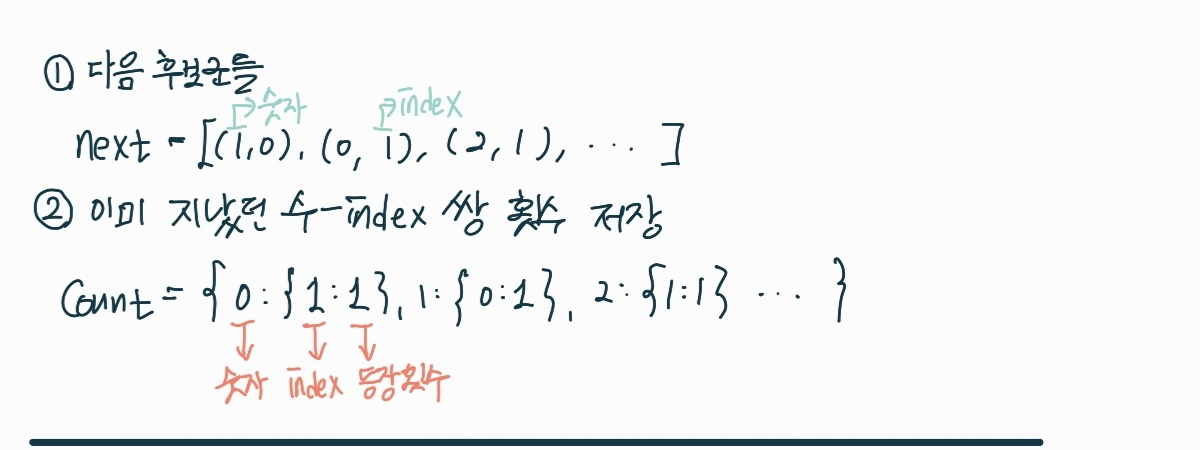 ① 다음 후보군들
숫자 index
next = [(1,0), (0, 1), (2, 1), ... ]
② 이미 지났던 수-index 쌍 횟수 저장
Count = { 0 : {1 : 1}, 1 : {0 : 1}, 2 : {1 : 1} ... }
숫자 index 등장횟수